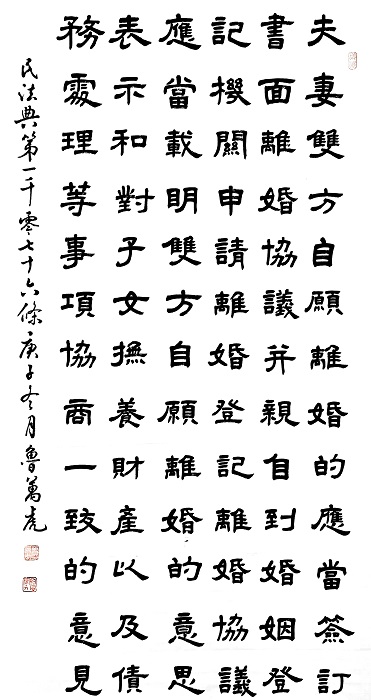 夫妻雙方自願離婚的應當簽訂
書面離婚協議并親自到婚姻登
記機關申請離婚登記離婚協議
應當載明雙方自願離婚的意思
表示和對子女撫養財產以及債
務處理等事項協商一致的意見
民法典第一千零七十六條庚子冬月魯萬虎